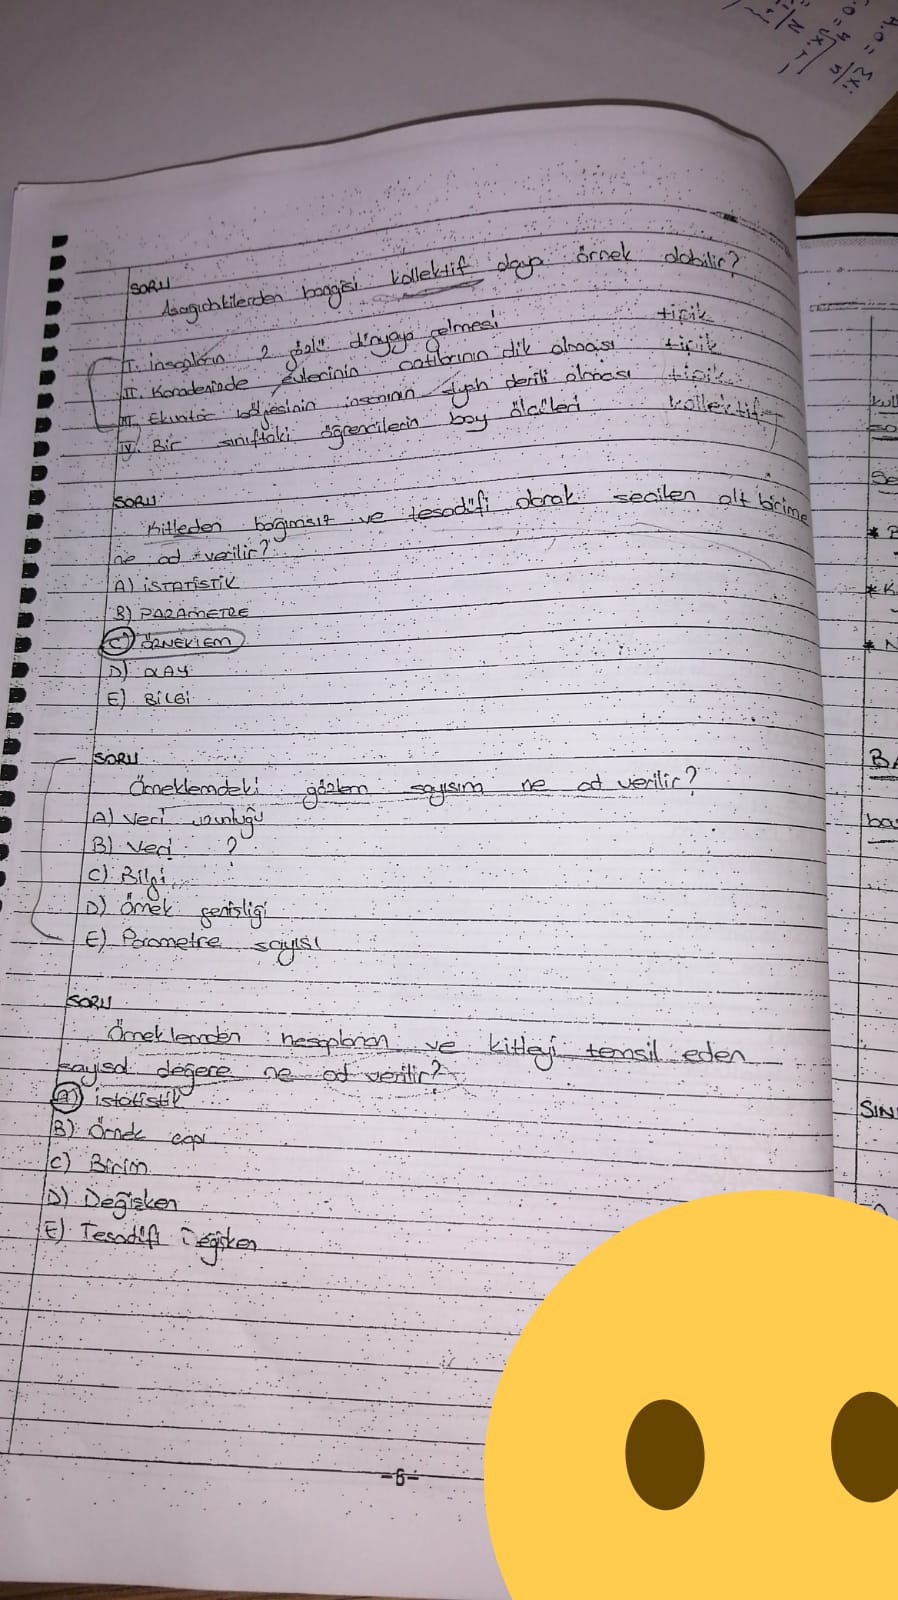 SORU
Aşağıdakilerden hangisi kollektif olaya örnek olabilir?
I. İnsanların 2 gözlü dünyaya gelmesi tipik
II. Karadenizde evlerinin çatılarının dik olması tipik
III. Ekvator bölgesinin insanının siyah derili olması tipik
IV. Bir sınıftaki öğrencilerin boy ölçüleri kollektif
SORU
Kitleden bağımsız ve tesadüfi olarak seçilen alt birime
ne ad verilir?
A) İSTATİSTİK
B) PARAMETRE
C) ÖRNEKLEM
D) OLAY
E) BİLGİ
SORU
Örneklemdeki gözlem sayısına ne ad verilir?
A) Veri uzunluğu
B) Veri ?
C) Bilgi
D) Örnek genişliği
E) Parametre sayısı
SORU
Örneklemden hesaplanan ve kitleyi temsil eden
sayısal değere ne ad verilir?
A) istatistik
B) Örnek çapı
C) Birim
D) Değişken
E) Tesadüfi Değişken
-6-